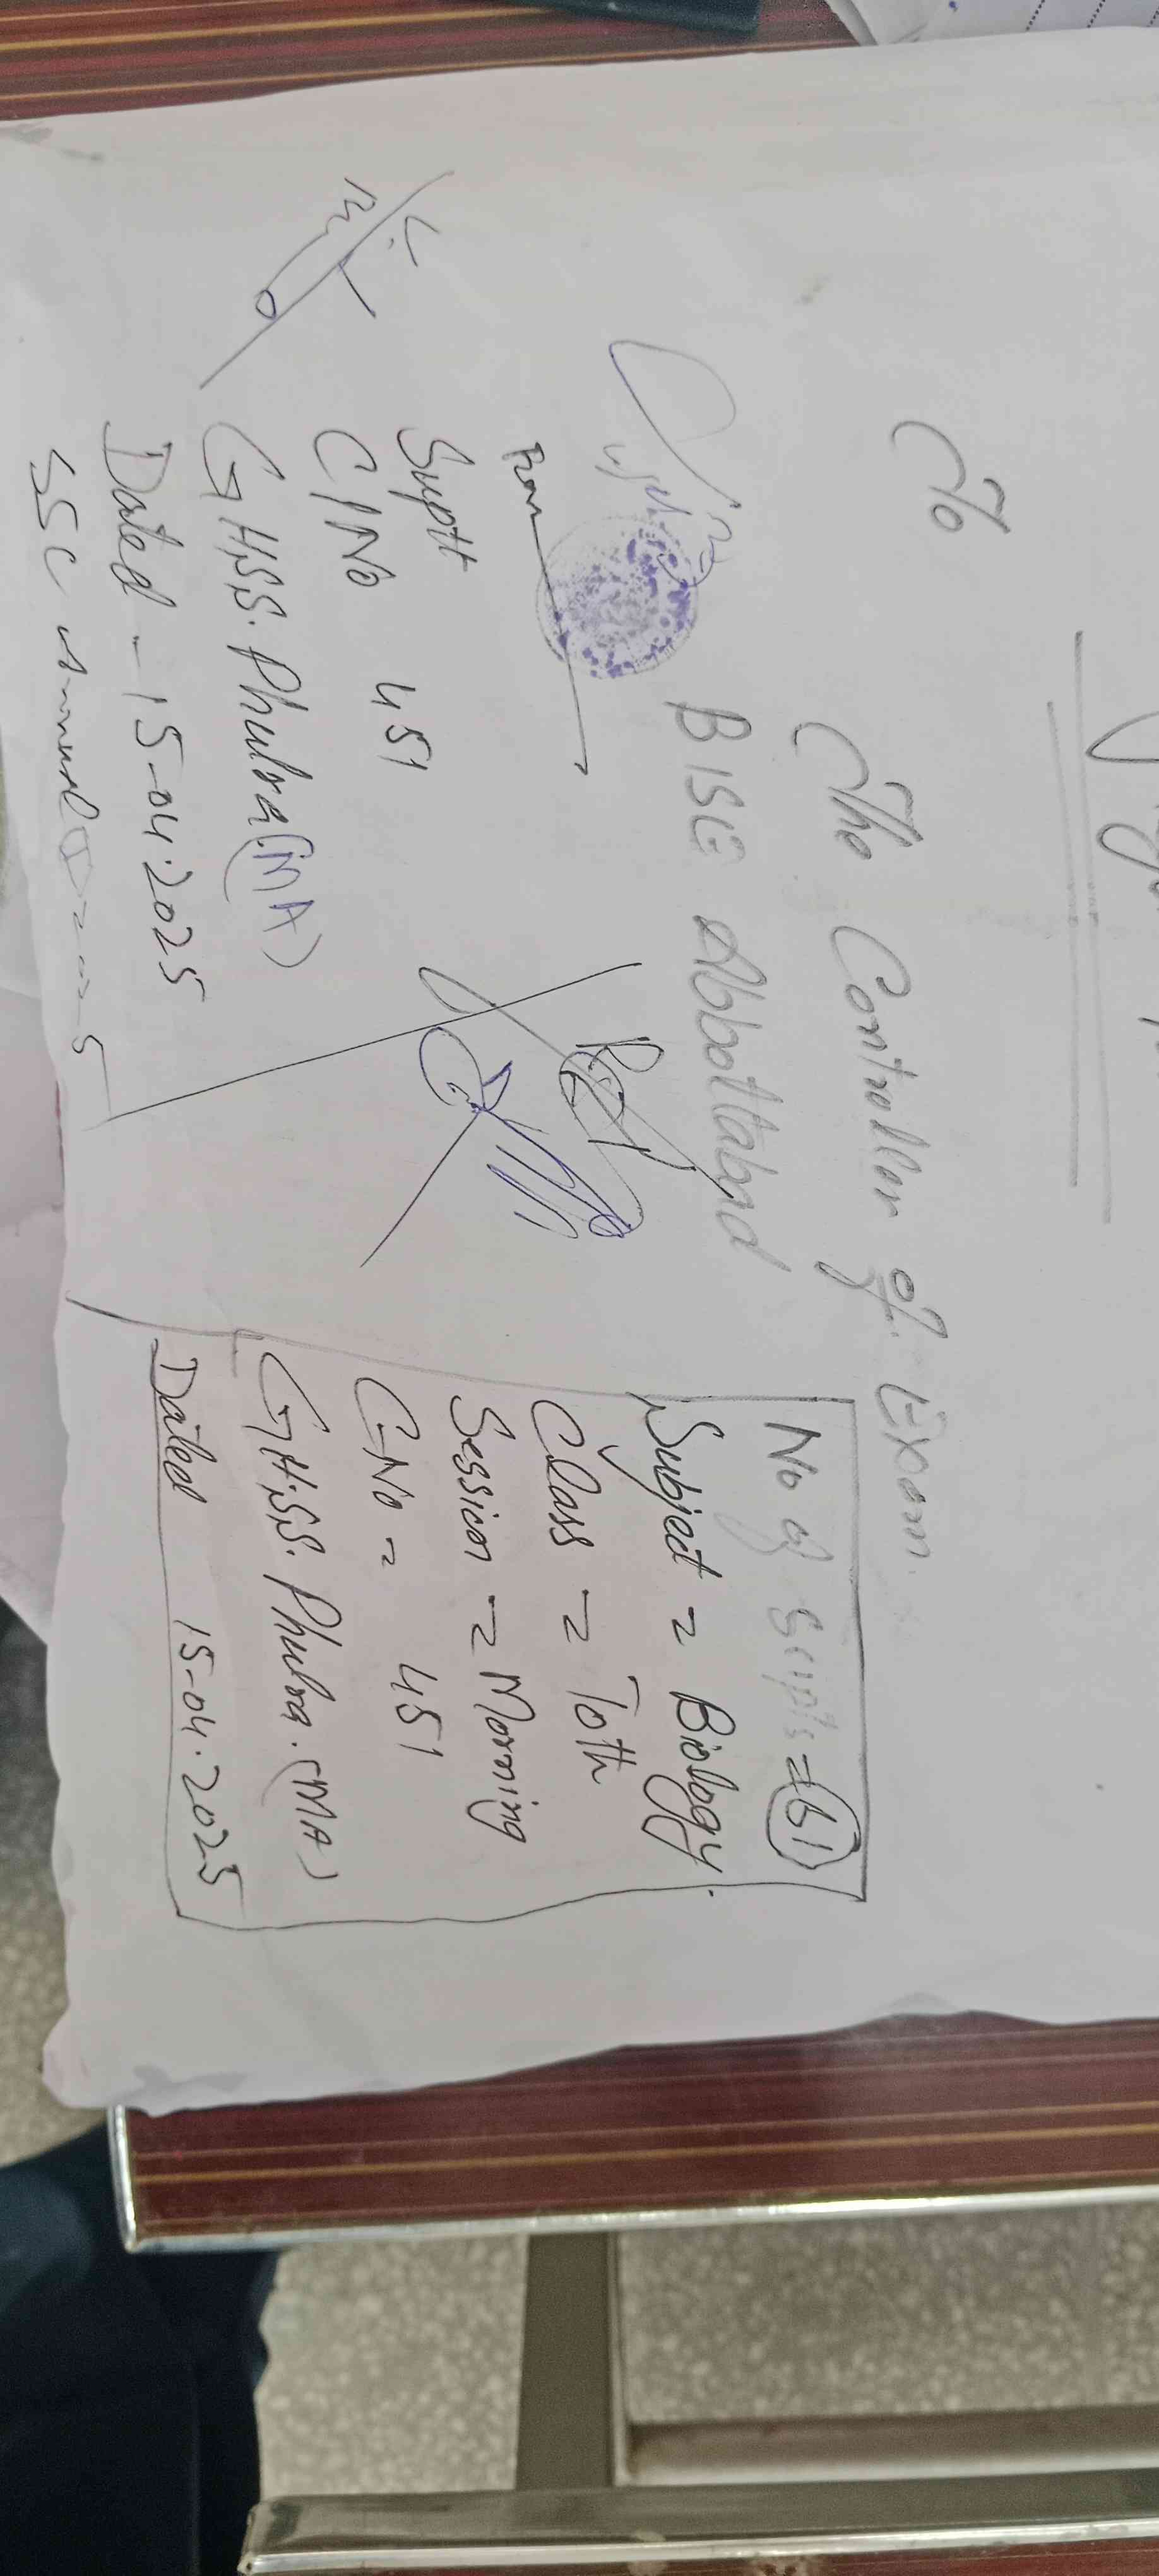 To
The Controller of Exam.
BISE Abbottabad
No of Scripts = (51)
Subject = Biology.
Class = 10th
Session = Morning
C-No = 451
G.H.S.S. Phulra. (MA)
Dated 15-04-2025
From
Suptt
C/No 451
G.H.S.S. Phulra (MA)
Dated - 15-04-2025
SSC Annual I 2025